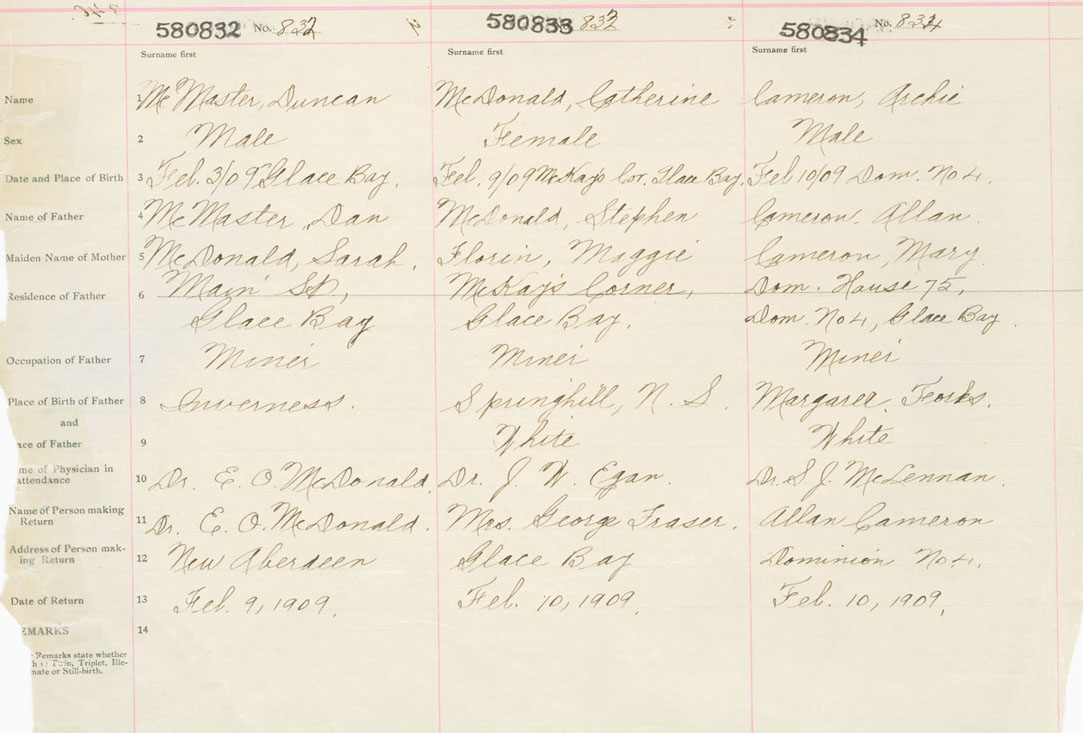 580832 No. 832 580833 832 580834 No. 834
Surname first Surname first Surname first
Name 1 McMaster, Duncan McDonald, Catherine Cameron, Archie
Sex 2 Male Female Male
Date and Place of Birth 3 Feb. 3/09 Glace Bay. Feb. 9/09 McKays Cor. Glace Bay. Feb 10/09 Dom. No 4.
Name of Father 4 McMaster, Dan McDonald, Stephen Cameron, Allan.
Maiden Name of Mother 5 McDonald, Sarah. Florin, Maggie Cameron, Mary.
Residence of Father 6 Main St., McKay's Corner, Dom. House 75,
Glace Bay Glace Bay. Dom. No 4, Glace Bay.
Occupation of Father 7 Miner Miner Miner
Place of Birth of Father 8 Inverness. Springhill, N. S. Margaree Forks.
and
ace of Father 9 White White
me of Physician in
attendance 10 Dr. E. O. McDonald. Dr. J. W. Egan. Dr. S. J. McLennan.
Name of Person making
Return 11 Dr. E. O. McDonald. Mrs. George Fraser. Allan Cameron
Address of Person mak-
ing Return 12 New Aberdeen Glace Bay Dominion No 4.
Date of Return 13 Feb. 9, 1909. Feb. 10, 1909. Feb. 10, 1909.
EMARKS 14
Remarks state whether
Twin, Triplet, Ille-
mate or Still-birth.